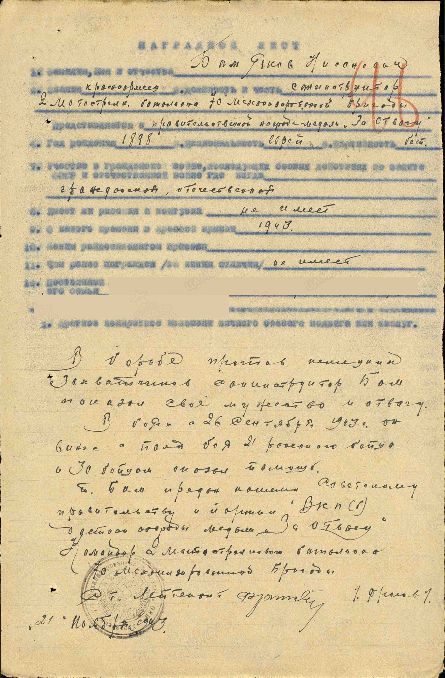 НАГРАДНОЙ ЛИСТ
1. Фамилия, имя и отчество Бам Яков
2. Звание красноармеец 3. должность и часть санинструктор
2 мотострелк. батальона 70 Механизированной бригады
Представляется к правительственной награде медаль „За отвагу
4. Год рождения 1898 5. национальность еврей 6. партийность бесп.
7. Участие в гражданской войне, последующих боевых действиях по защите
СССР и отечественной войне где когда
гражданской, отечественной
8. Имеет ли ранения и контузии не имеет
9. С какого времени в Красной Армии 1943
10. Каким райвоенкоматом призван
11. Чем ранее награжден /за какие отличия/ не имеет
12. Постоянный
его семьи
1. Краткое конкретное изложение личного боевого подвига или заслуг.
В борьбе против немецких
захватчиков санинструктор Бам
показал своё мужество и отвагу.
В боях с 26 сентября 1943. он
вынес с поля боя 21 раненого бойца
и 30 бойцам оказал помощь.
т. Бам предан нашему Советскому
правительству и партии ВКП(б)
достоин награды медаль „За отвагу"
Командир 2 мотострелкового батальона
Механизированной бригады
Ст. Лейтенант
„21" Ноября 1943.